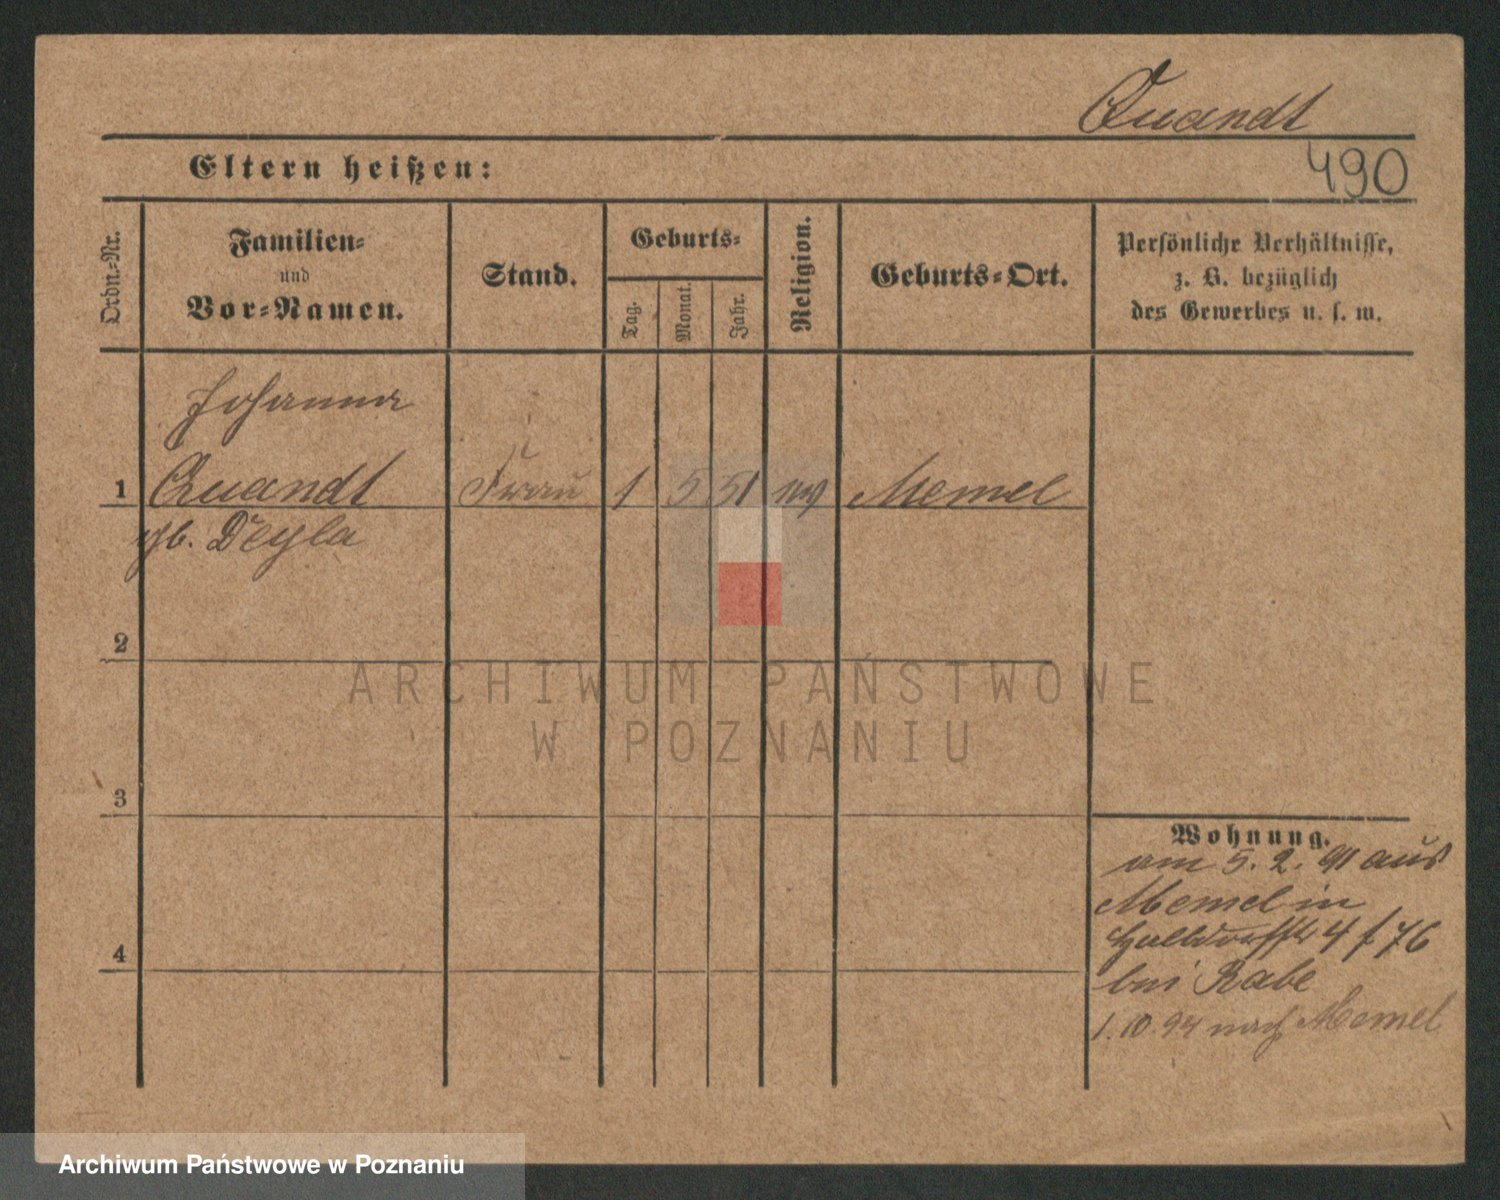 Quandt
490
Eltern heißen:
Ordn.-Nr.
Familien-
und
Vor-Namen.
Stand.
Geburts-
Tag.
Monat.
Jahr.
Religion.
Geburts-Ort.
Persönliche Verhältnisse,
z. B. bezüglich
des Gewerbes u. s. w.
Johanna
1 Quandt Frau 1 5 51 ev Memel
gb. Deyla
2
3
4
Wohnung.
am 5. 2. 91 aus
Memel in
Halbdorfstr 4 f 76
bei Rabe
1. 10. 94 nach Memel
ARCHIWUM PAŃSTWOWE
W POZNANIU
Archiwum Państwowe w Poznaniu